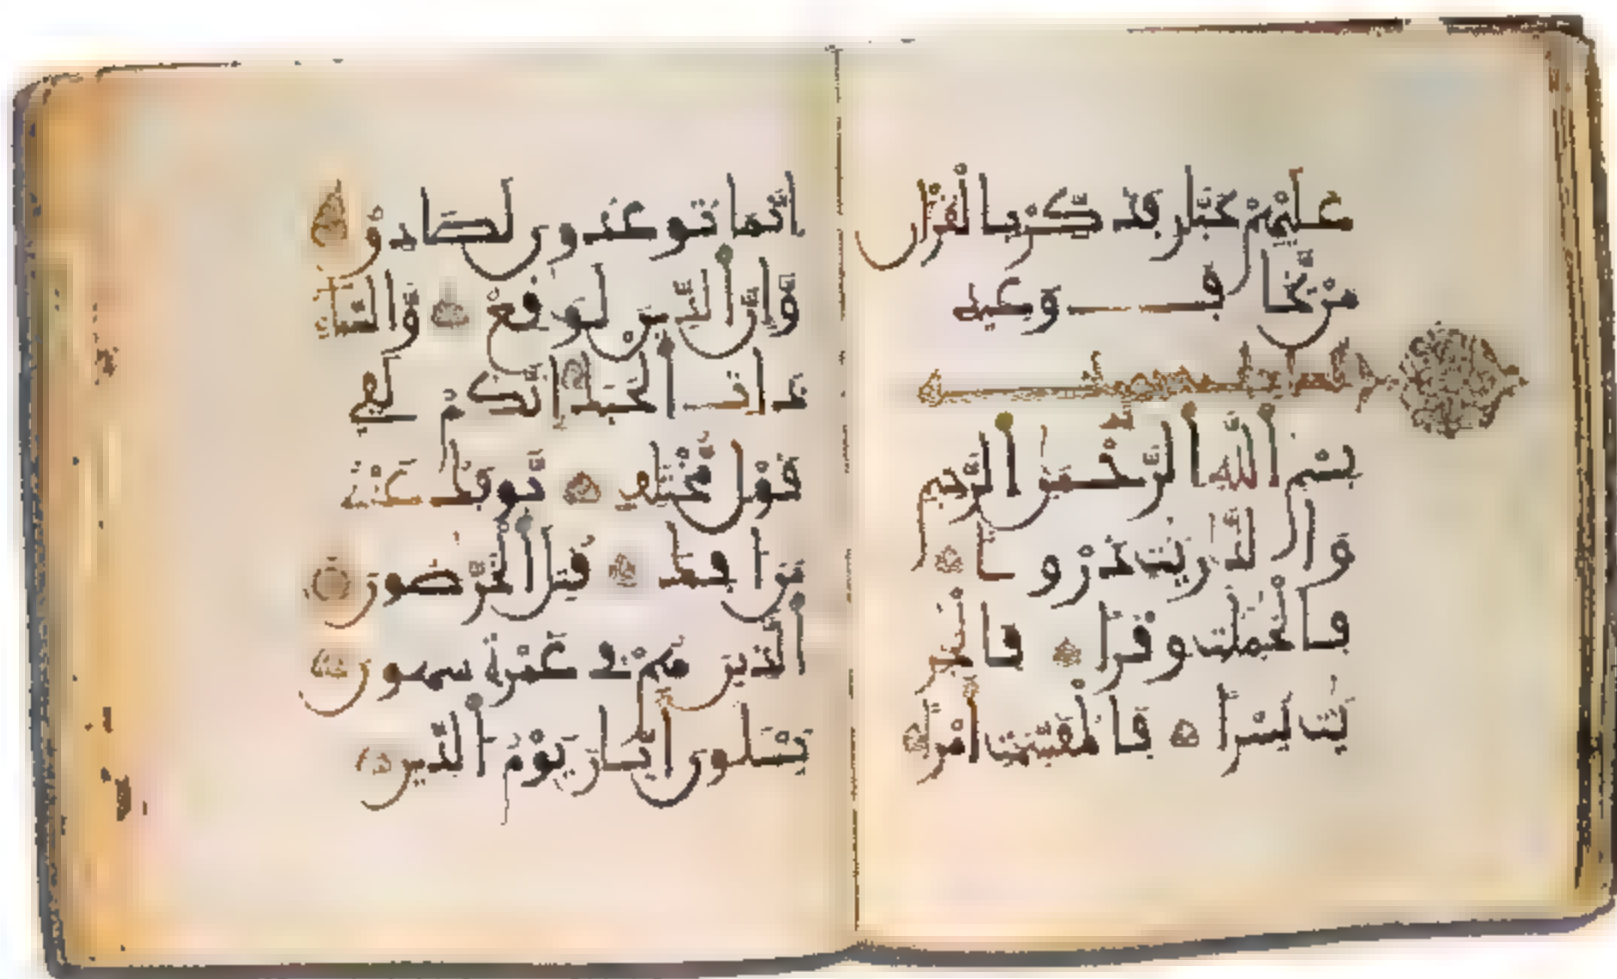 عَلَيْهِم بِجَبَّارٍ فَذَكِّرْ بِالْقُرْآنِ
مَنْ يَّخَافُ وَعِيدِ
بِسْمِ اللَّهِ الرَّحْمَنِ الرَّحِيمِ
وَالذَّرِيَتِ ذَرْوًا
فَالْحَمِلَتِ وِقْرًا فَالْجَرِ
يَتِ يُسْرًا فَالْمُقَسِّمَتِ أَمْرًا
إِنَّمَا تُوعَدُونَ لَصَادِقٌ
وَّإِنَّ الدِّينَ لَوَقِعٌ وَّالسَّمَا
ءِ ذَاتِ الْحُبُكِ إِنَّكُمْ لَفِي
قَوْلٍ مُّخْتَلِفٍ يُّوفَكُ عَنْهُ
مَنْ أُفِكَ قُتِلَ الْخَرَّصُونَ
الَّذِينَ هُمْ فِي غَمْرَةٍ سَهُونَ
يَسْـَٔلُونَ أَيَّانَ يَوْمُ الدِّينِ